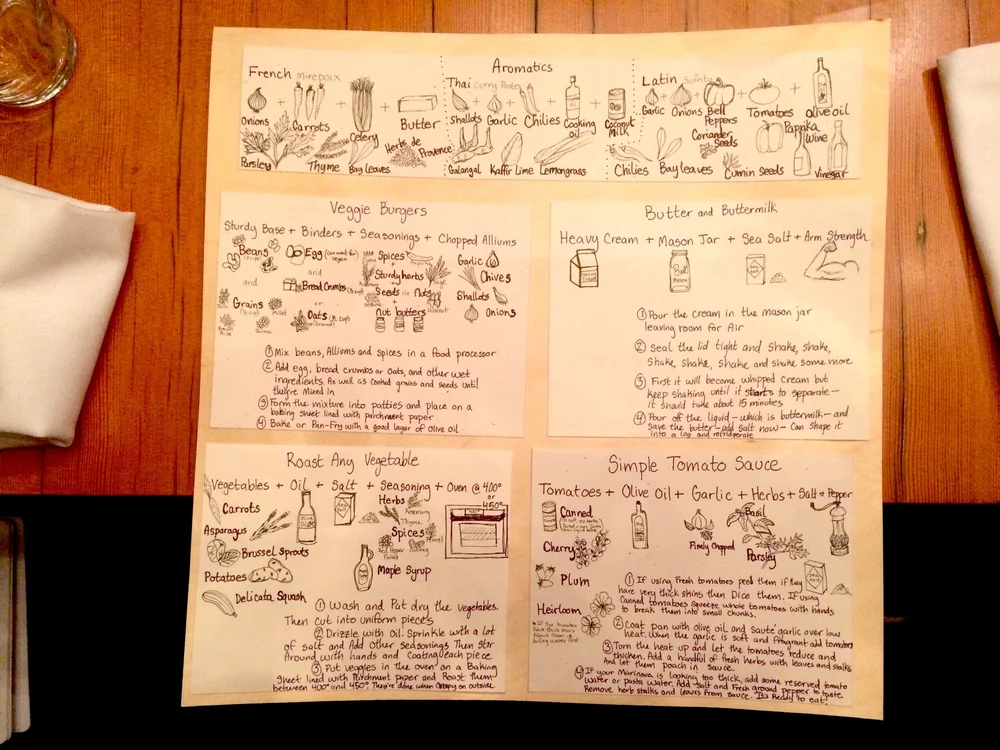 Aromatics
French mirepoix
Onions + Carrots + Celery + Butter
Parsley Thyme Bay leaves Herbs de Provence
Thai Curry Paste
Shallots + Garlic + Chilies + Cooking oil + Coconut Milk
Galangal Kaffir Lime Lemongrass
Latin Sofrito
Garlic + Onions + Bell Peppers + Tomatoes + Olive oil
Chilies Bay leaves Coriander Seeds Cumin seeds Paprika Wine Vinegar
Veggie Burgers
Sturdy Base + Binders + Seasonings + Chopped Alliums
Beans
and
Grains
Egg (an omit for vegan)
and
Bread Crumbs
or
Oats (½ cup)
Spices
Sturdy herbs
Sage
Seeds or Nuts
Walnut
nut butters
Garlic
Chives
Shallots
Onions
① Mix beans, Alliums and spices in a food processor
② Add egg, bread crumbs or oats, and other wet
ingredients. As well as cooked grains and seeds until
they're mixed in
③ Form the mixture into patties and place on a
baking sheet lined with parchment paper
④ Bake or Pan-Fry with a good layer of olive oil
Butter and Buttermilk
Heavy Cream + Mason Jar + Sea Salt + Arm Strength
Ball
Mason
① Pour the cream in the mason jar
leaving room for Air
② Seal the lid tight and shake, shake,
shake, shake, shake and shake some more
③ First it will become whipped cream but
keep shaking until it starts to separate—
it should take about 15 minutes
④ Pour off the liquid—which is buttermilk—and
save the butter—add salt now—Can shape it
into a log and refrigerate
Roast Any Vegetable
Vegetables + Oil + Salt + Seasoning + Oven @ 400°
or
450°
Carrots
Asparagus
Brussel Sprouts
Potatoes
Delicata Squash
Herbs
Rosemary
Thyme
Spices
Red Pepper Flakes
Fennel
Maple Syrup
① Wash and Pat dry the vegetables.
Then cut into uniform pieces
② Drizzle with Oil. Sprinkle with a lot
of salt and Add other seasonings Then Stir
Around with hands and Coating each piece
③ Put veggies in the oven on a Baking
Sheet lined with Parchment paper and Roast them
between 400° and 450°. They're done when Crispy on outside
Simple Tomato Sauce
Tomatoes + Olive Oil + Garlic + Herbs + Salt & Pepper
Canned
Cherry
Plum
Heirloom
Finely Chopped
Basil
Parsley
① If using Fresh tomatoes peel them if they
have very thick skins then Dice them. If using
Canned tomatoes squeeze whole tomatoes with hands
to break them into small chunks.
② Coat pan with olive oil and sauté garlic over low
heat. When the garlic is soft and fragrant add tomatoes
③ Turn the heat up and let the tomatoes reduce and
thicken. Add a handful of fresh herbs with leaves and stalks
And let them poach in sauce.
④ If your Marinara is looking too thick, add some reserved tomato
water or pasta water. Add salt and Fresh ground pepper to taste
Remove herb stalks and leaves from sauce. It's Ready to eat!